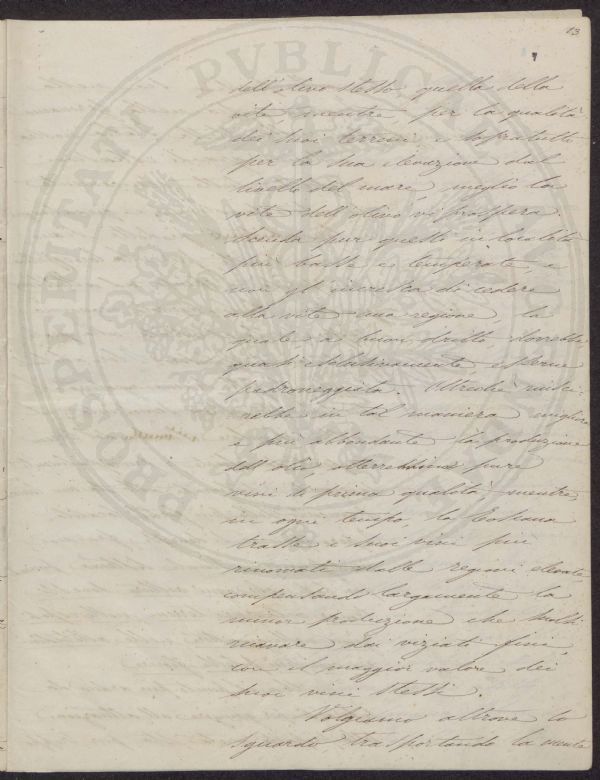 13
dell'olivo stesso, quella della
vite mentre, per la qualità
dei suoi terreni, e sopratutto
per la sua elevazione dal
livello del mare, meglio la
vite dell'olivo vi prospera.
Scenda pur questi in località
più basse e temperate e
non gl'incresca di cedere
alla vite una regione la
quale a buon dritto dovrebbe
quasi esclusivamente esserne
padroneggiata. Oltreché
in tal maniera migliore
e più abbondante la produzione
dell'olio otterrebbonsi pure
vini di prima qualità, mentre
in ogni tempo, la Toscana
trasse i suoi vini più
rinomati dalle regioni elevate
compensando largamente la
minor produzione che
ricavare dai vizzati fini,
con il maggior valore dei
suoi vini stessi.
Volgiamo altrove lo
sguardo trasportando la mente
PROSPERITATI PVBLICAE